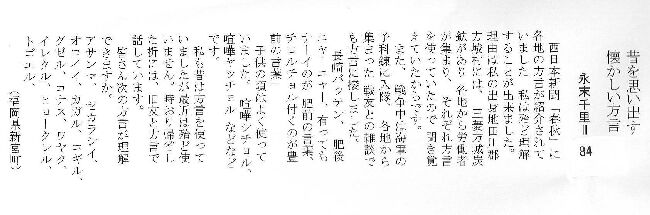 昔を思い出す
懐かしい方言
永末千里Ⅱ 84
西日本新聞「春秋」に
各地の方言が紹介されて
いました。私は殆ど理解
することが出来ました。
理由は私の出身地田川郡
方城村には、三菱方城炭
鉱があり、各地から労働者
が集まり、それぞれ方言
を使っていたので、聞き覚
えていたからです。
また、戦争中は海軍の
予科練に入隊、各地から
集まった戦友との雑談で
も方言に接しました。
長崎バッテン、肥後
ニャーニャー、有っても
ナーイのが肥前の言葉
チョルチョル付くのが豊
前の言葉
子供の頃はよく使って
いました。喧嘩シチョル、
喧嘩ヤッチョル などなど
です。
私も昔は方言を使って
いましたが最近は殆ど使
いません。時おり帰省し
た折には、旧友と方言で
話しています。
皆さん次の方言が理解
できますか。
アサマシ、セウラシイ、
オコノイ、カガル、コギル、
グゼル、コナス、ワヤク、
イレクル、ヒョークレル、
トゴエル、
（福岡県新宮町）